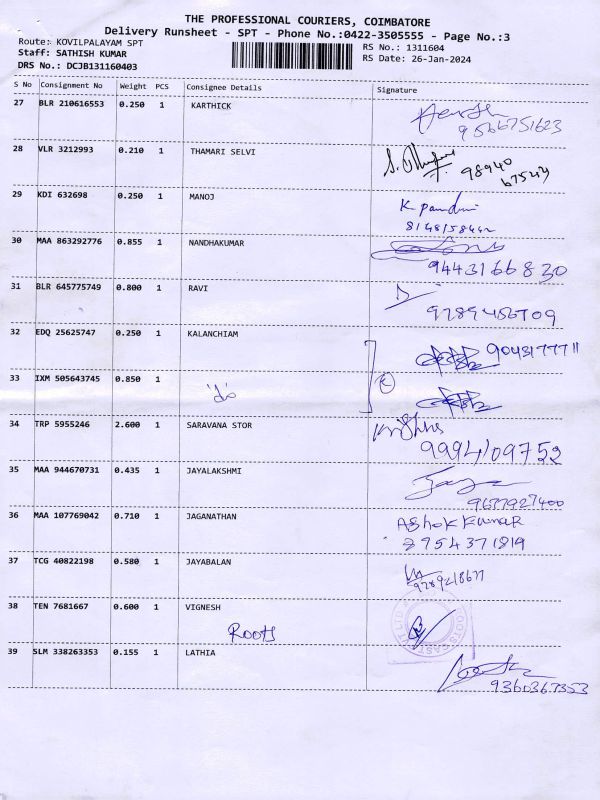 THE PROFESSIONAL COURIERS, COIMBATORE
Delivery Runsheet - SPT - Phone No.:0422-3505555 - Page No.:3
Route: KOVILPALAYAM SPT
RS No.: 1311604
Staff: SATHISH KUMAR
RS Date: 26-Jan-2024
DRS No.: DCJB131160403
S No Consignment No Weight PCS Consignee Details Signature
27 BLR 210616553 0.250 1 KARTHICK
9566751623
28 VLR 3212993 0.210 1 THAMARI SELVI
98940
67543
29 KDI 632698 0.250 1 MANOJ
K. Pandi
30 MAA 863292776 0.855 1 NANDHAKUMAR
9443166830
31 BLR 645775749 0.800 1 RAVI
9789456709
32 EDQ 25625747 0.250 1 KALANCHIAM
9043177711
33 IXM 505643745 0.850 1
34 TRP 5955246 2.600 1 SARAVANA STOR
9994109752
35 MAA 944670731 0.435 1 JAYALAKSHMI
Jaya
9677927400
36 MAA 107769042 0.710 1 JAGANATHAN
Ashok Kumar
8754371819
37 TCG 40822198 0.580 1 JAYABALAN
38 TEN 7681667 0.600 1 VIGNESH
Roots
39 SLM 338263353 0.155 1 LATHIA
9360367353